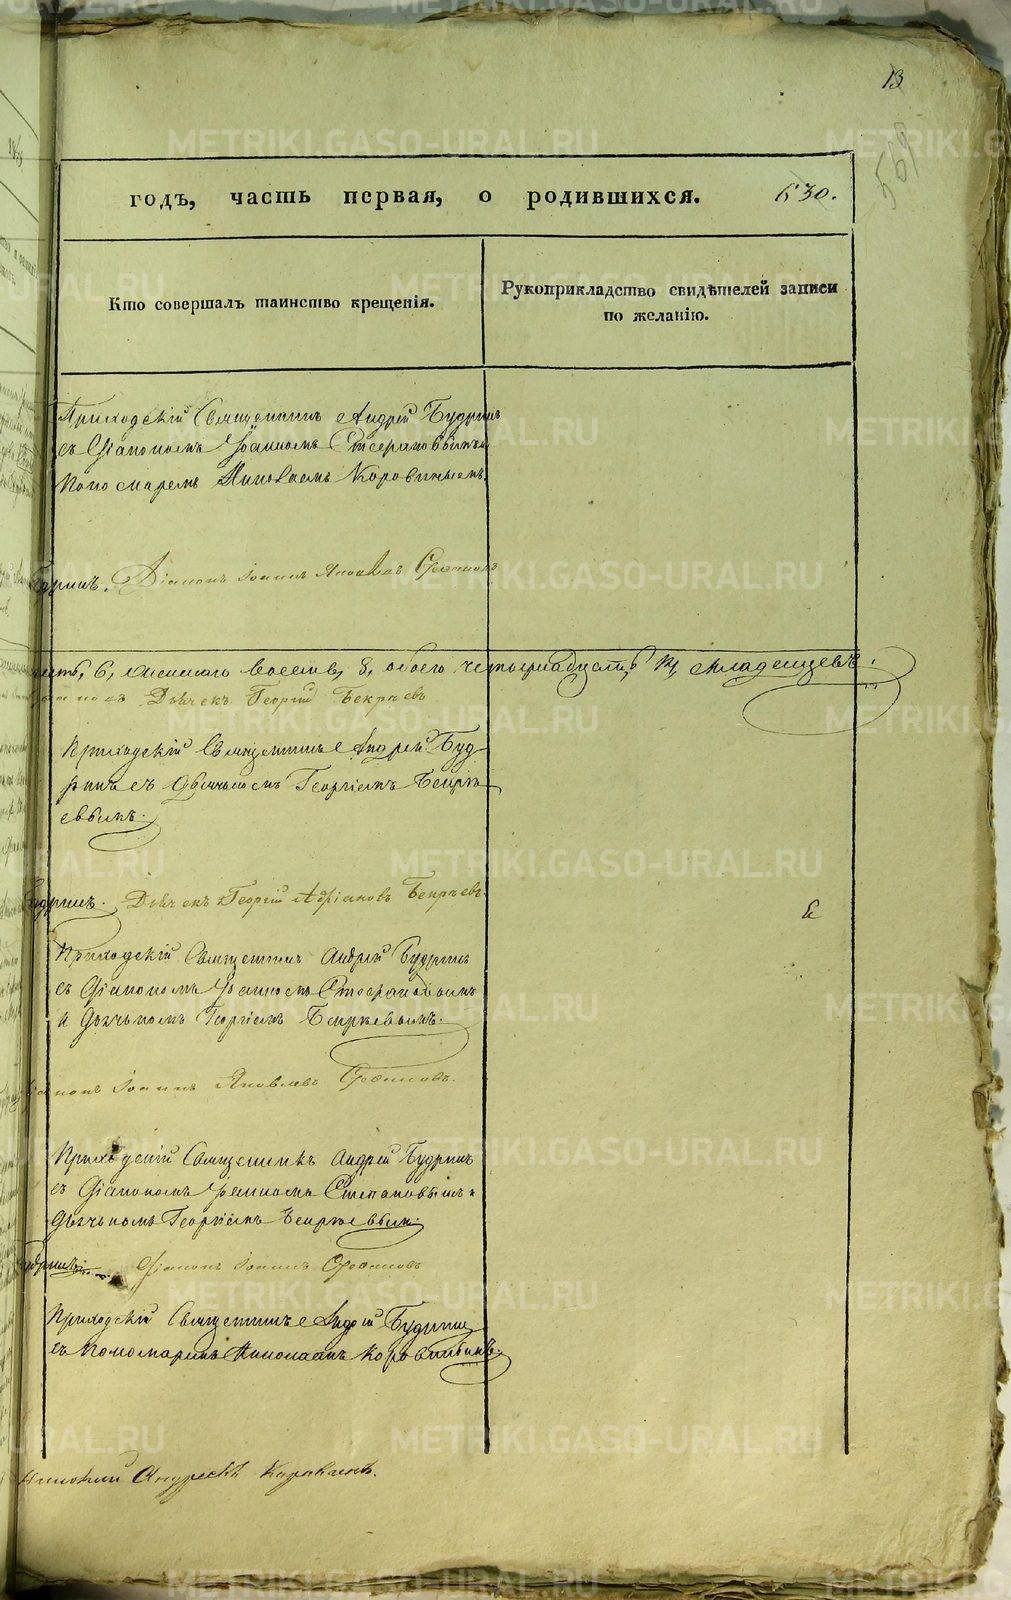 13
569
годъ, часть первая, о родившихся. 630.
Кто совершалъ таинство крещенія.
Рукоприкладство свидѣтелей записи
по желанію.
Приходскій Священникъ Андрей Будринъ
съ Діакономъ Іоанномъ
Пономаремъ Николаемъ Коровинымъ.
Діаконъ Іоаннъ Яковлевъ
6, женскаго восемь, 8, обоего четырнадцать 14, младенцевъ.
Дьячекъ Георгій Бекряевъ
Приходскій Священникъ Андрей Буд-
ринъ съ Дьячкомъ Георгіемъ Бекря-
евымъ.
Будринъ. Дьячекъ Георгій Адріановъ Бекряевъ.
Приходскій Священникъ Андрей Будринъ
съ Діакономъ Іоанномъ
и Дьячкомъ Георгіемъ Бекряевымъ.
Діаконъ Іоаннъ Яковлевъ
Приходскій Священникъ Андрей Будринъ
съ Діакономъ Іоанномъ Степановымъ и
Дьячкомъ Георгіемъ Бекряевымъ.
Будринъ. Діаконъ Іоаннъ
Приходскій Священникъ Андрей Будринъ
съ Пономаремъ Николаемъ Коровинымъ.
Андреевъ Коровинъ.
METRIKI.GASO-URAL.RU